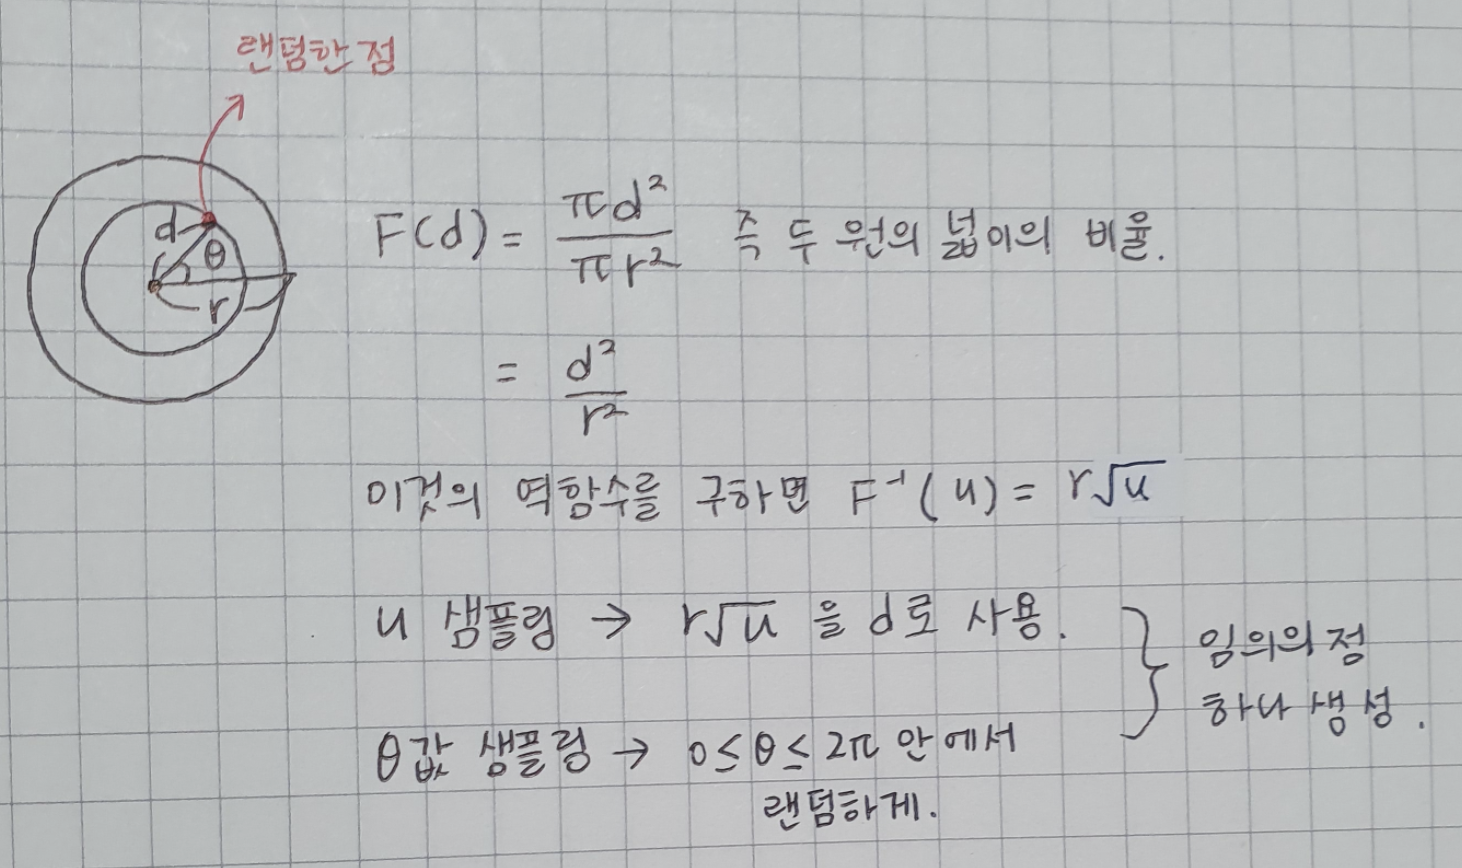 랜덤한 점
d
θ
r
F(d) = πd² / πr² 즉 두 원의 넓이의 비율.
= d² / r²
이것의 역함수를 구하면 F⁻¹(u) = r√u
u 샘플링 → r√u 을 d로 사용.
θ값 샘플링 → 0≤θ≤2π 안에서
랜덤하게.
임의의 점
하나 생성.